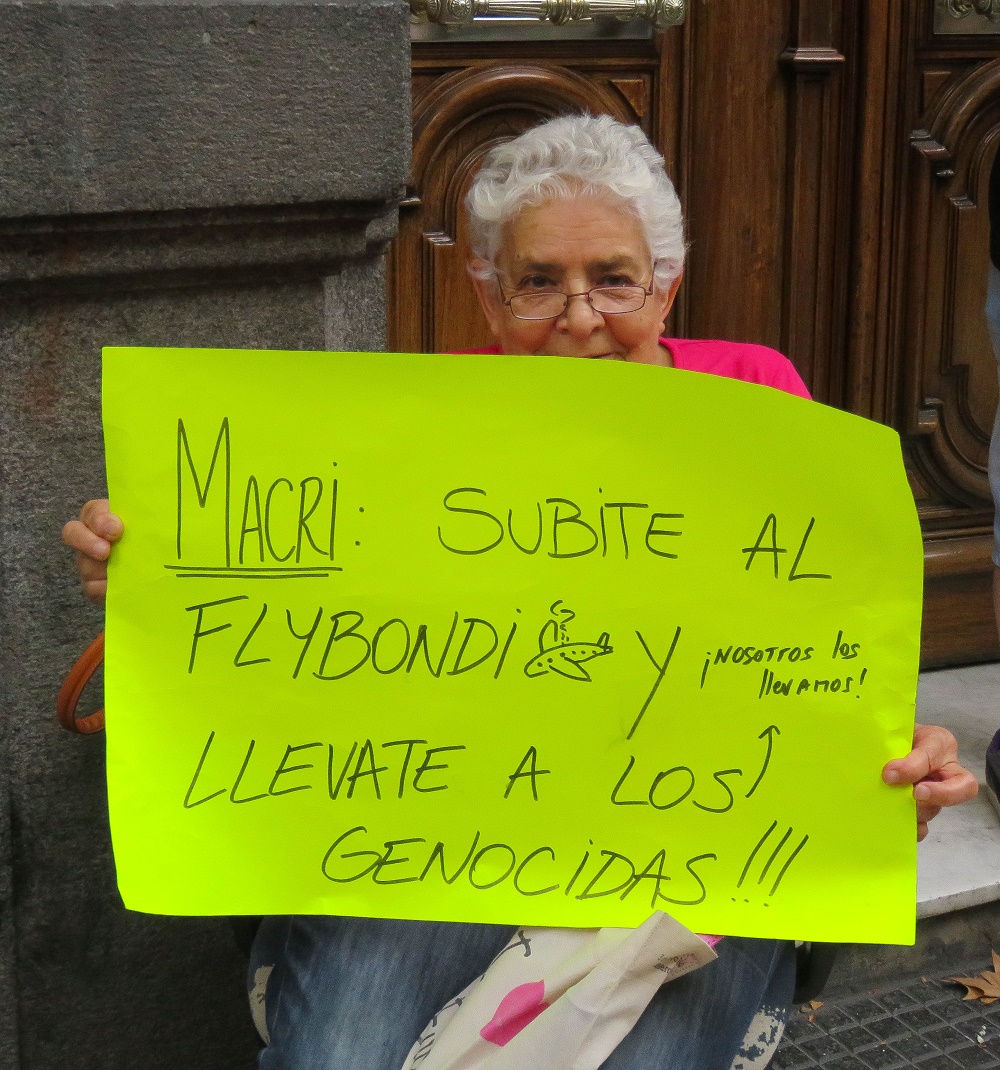 MACRI: SUBITE AL
FLYBONDI Y
¡NOSOTROS los
llevAMOS!
LLEVATE A LOS
GENOCIDAS!!!